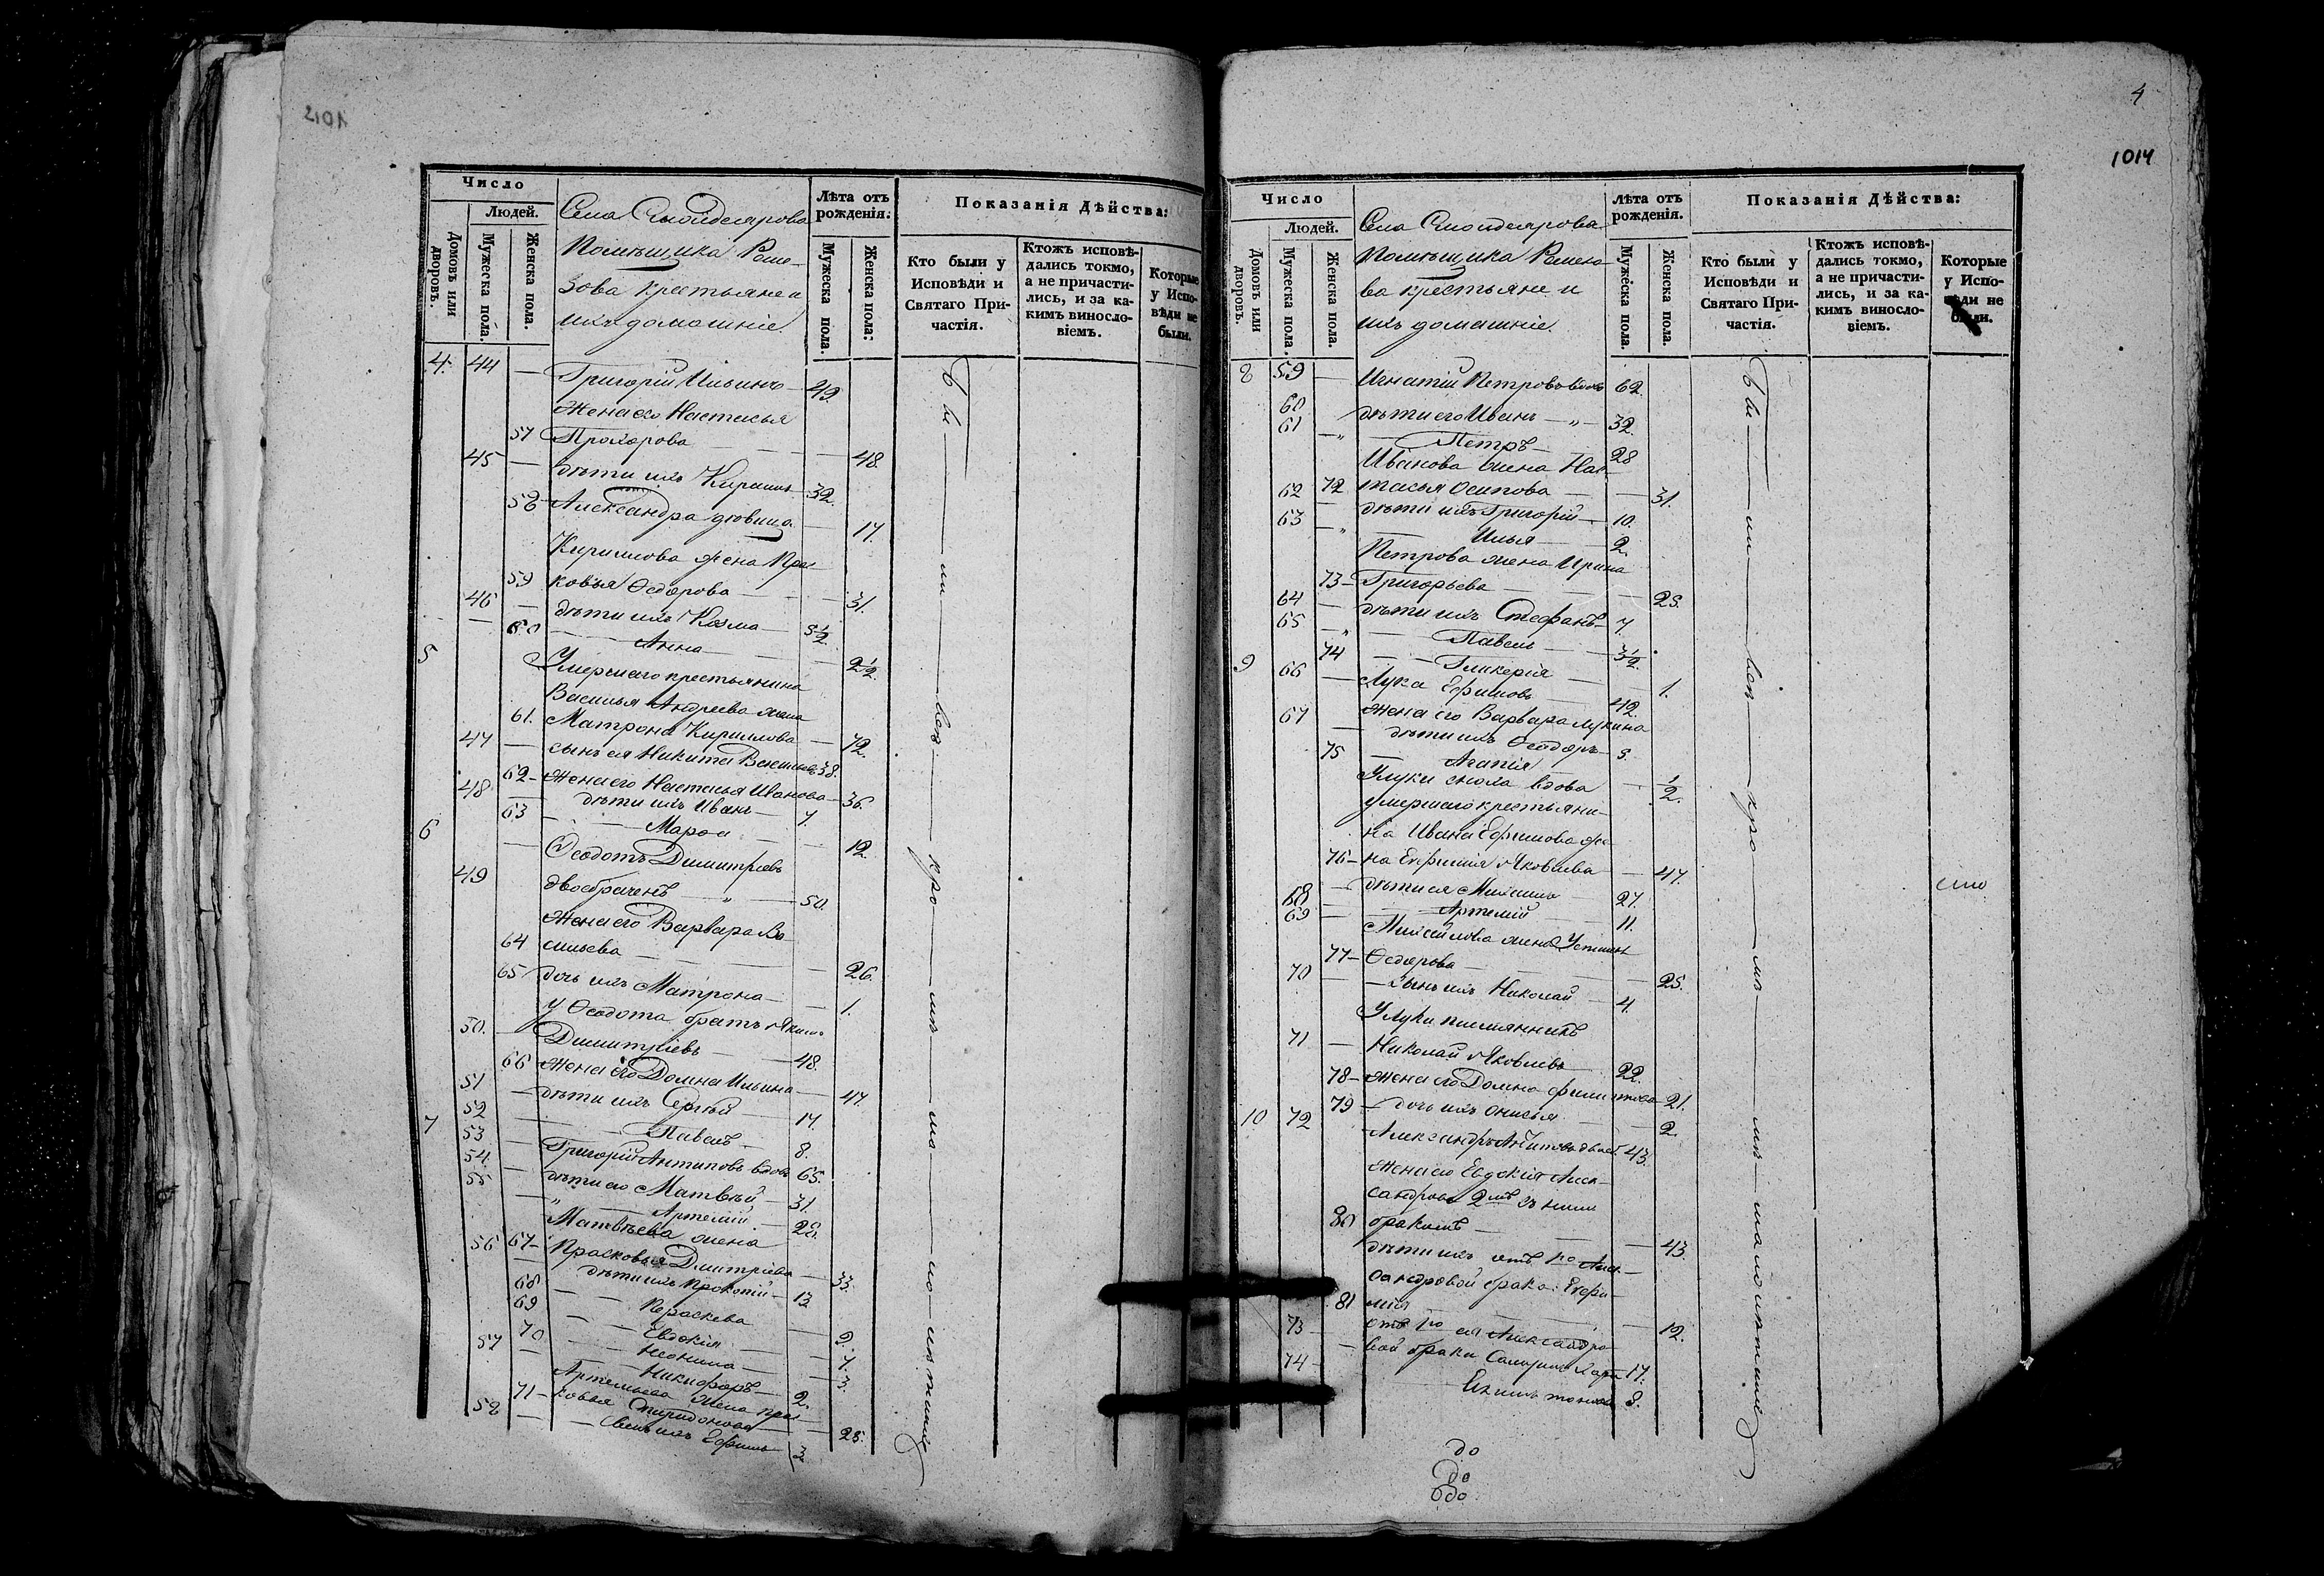 Число
Людей.
Домовъ или дворовъ.
Мужеска пола.
Женска пола.
Села
помѣщика
зова крестьяне и
ихъ домашніе.
Лѣта отъ рожденія.
Мужеска пола.
Женска пола.
Показанія Дѣйства:
Кто были у Исповѣди и Святаго Причастія.
Ктожъ исповѣдались токмо, а не причастились, и за какимъ винословіемъ.
Которые у Исповѣди не были.
4. 44 — Григорій Ильинъ — 49.
Жена его Настасья
57 Прохорова — 48.
45 — дѣти ихъ Кирилъ 32.
58 Александра дѣвица — 17.
Кирилова жена Прас
59 ковья Ѳедорова — 31.
46 — дѣти ихъ Козма — 5½
60 — Анна — 2½.
5 Умершаго крестьянина
Василья Андреева жена
61. Матрона Кирилова — 72.
47 — сынъ ея Никита Васильевъ 38.
62 — Жена его Настасья Иванова — 36.
48 — дѣти ихъ Иванъ — 7.
63 — Марѳа — 12.
6 Ѳеодотъ Димитріевъ
49 двоебраченъ — 50.
Жена его Варвара Ва
64 сильева — 26.
65 дочь ихъ Матрона — 1.
У Ѳеодота братъ Якимъ
50. — Димитріевъ — 48.
66 Жена его Домна Ильина — 47.
51 — дѣти ихъ Сергѣй — 17.
52 — Павелъ — 8.
7 53 — Григорій Антиповъ вдовъ 65.
54. — дѣти его Матвѣй — 31.
55 — Артемій — 28.
Матвѣева жена
67 — Прасковья Дмитріева — 33.
56 — дѣти ихъ Прокопій — 13.
68 — Параскева — 9.
69 — Евдокія — 7.
70 — Неонила — 3.
57 — Никифоръ — 2.
Артемьева жена Прас
71 — ковья Спиридонова — 25.
58 — Сынъ ихъ Ефимъ 3
Бы — ли — всѣ — кро — мѣ — ма — ло — лѣтнихъ
4
1014
Число
Людей.
Домовъ или дворовъ.
Мужеска пола.
Женска пола.
Села
помѣщика
ва крестьяне и
ихъ домашніе.
Лѣта отъ рожденія.
Мужеска пола.
Женска пола.
Показанія Дѣйства:
Кто были у Исповѣди и Святаго Причастія.
Ктожъ исповѣдались токмо, а не причастились, и за какимъ винословіемъ.
Которые у Исповѣди не были.
8 59 — Игнатій Петровъ вдовъ 62.
60 дѣти его Иванъ — " — 32.
61 — " — Петръ — 28
Иванова жена Нас
72 тасья Осипова — 31.
62 — дѣти ихъ Григорій — 10.
63 — " Илья — 2.
Петрова жена Ирина
73 — Григорьева — 25.
64 — дѣти ихъ Стефанъ — 7.
65 — " Павелъ — 3½.
74 — Гликерія — 1.
9 66 — Лука Ефимовъ — 42.
Жена его Варвара Лукина
67 — дѣти ихъ Ѳеодоръ — 5.
75 — Агапія — ½.
У Луки сноха вдова
умершаго крестьяни-
на Ивана Ефимова же
76 — на Евфимія Яковлева — 47.
68 — дѣти ея Михаилъ — 27.
69 — Артемій — 11.
Михайлова жена Устинья
77 — Ѳедорова — 25.
70 — Сынъ ихъ Николай — 4.
У Луки племянникъ
71 — Николай Яковлевъ — 22.
78 — Жена его Домна — 21.
79 — дочь ихъ Анисья — 2.
10 72 Александръ 43.
Жена его Евдокія Алек-
сандрова 2мъ съ нимъ
80 бракомъ — 43.
дѣти ихъ отъ 1го Алек-
сандровой брака: Евфи-
81 мія — 12.
отъ 1го ея Александро
73 — вой брака 17.
74 — 8.
Бы — ли — всѣ — кро — мѣ — малолѣтнихъ
до
до
до